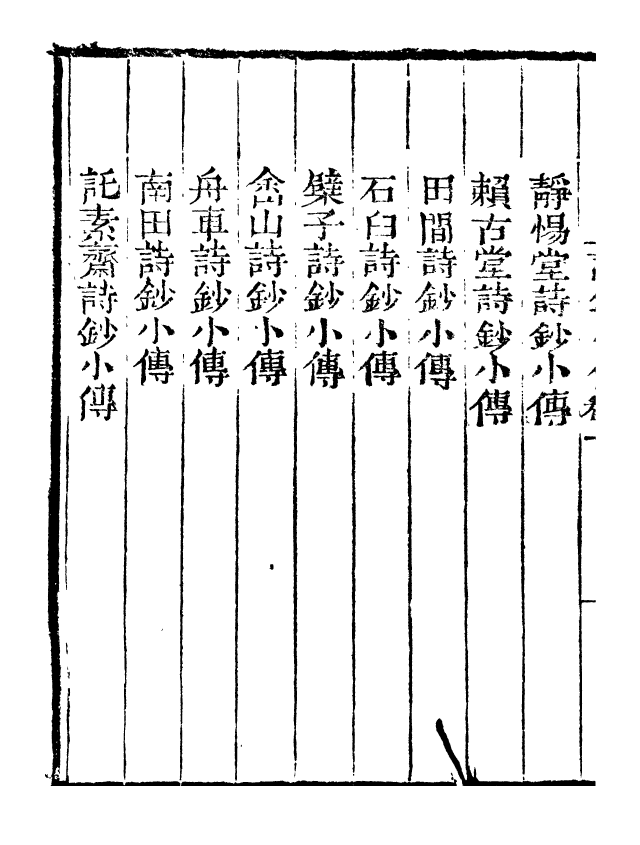 靜惕堂詩鈔小傳
賴古堂詩鈔小傳
田間詩鈔小傳
石臼詩鈔小傳
檗子詩鈔小傳
嵞山詩鈔小傳
舟車詩鈔小傳
南田詩鈔小傳
託素齋詩鈔小傳